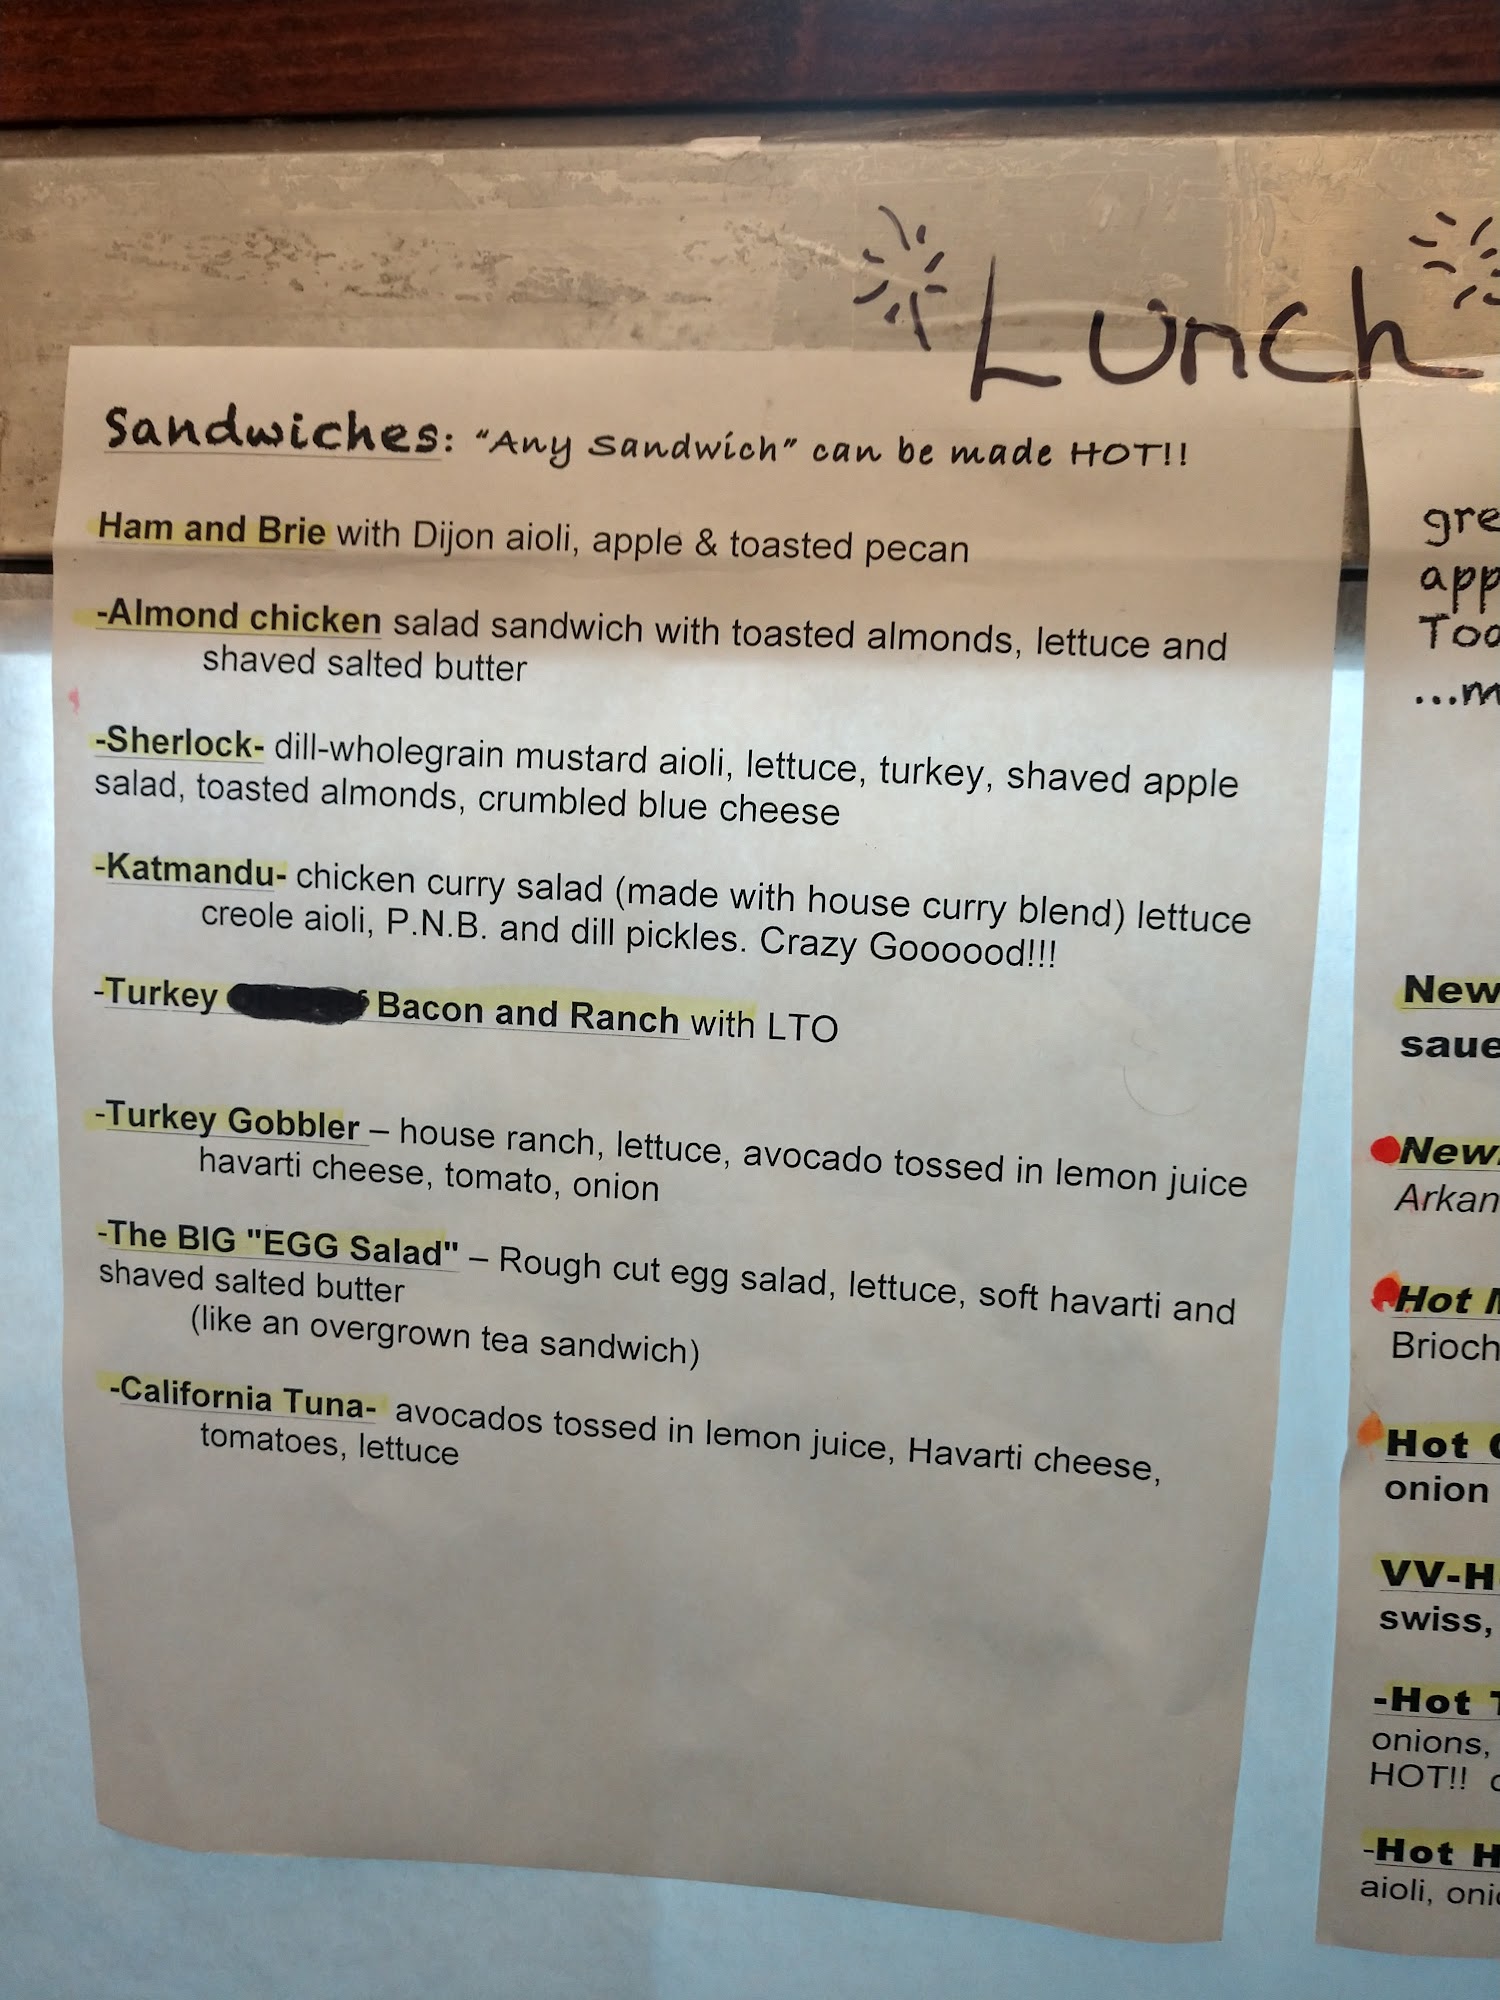 Lunch
Sandwiches: "Any Sandwich" can be made HOT!!
Ham and Brie with Dijon aioli, apple & toasted pecan
-Almond chicken salad sandwich with toasted almonds, lettuce and
shaved salted butter
-Sherlock- dill-wholegrain mustard aioli, lettuce, turkey, shaved apple
salad, toasted almonds, crumbled blue cheese
-Katmandu- chicken curry salad (made with house curry blend) lettuce
creole aioli, P.N.B. and dill pickles. Crazy Goooood!!!
-Turkey Bacon and Ranch with LTO
-Turkey Gobbler – house ranch, lettuce, avocado tossed in lemon juice
havarti cheese, tomato, onion
-The BIG "EGG Salad" – Rough cut egg salad, lettuce, soft havarti and
shaved salted butter
(like an overgrown tea sandwich)
-California Tuna- avocados tossed in lemon juice, Havarti cheese,
tomatoes, lettuce
New
Hot
onion
VV-H
swiss,
-Hot
onions,
HOT!!
-Hot H
aioli,